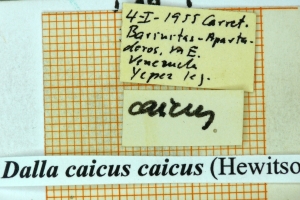 4-I-1955 Carret.
Barinitas-Aparta-
deros, M E.
Venezuela
Yepez leg.
caicus
Dalla caicus caicus (Hewitso